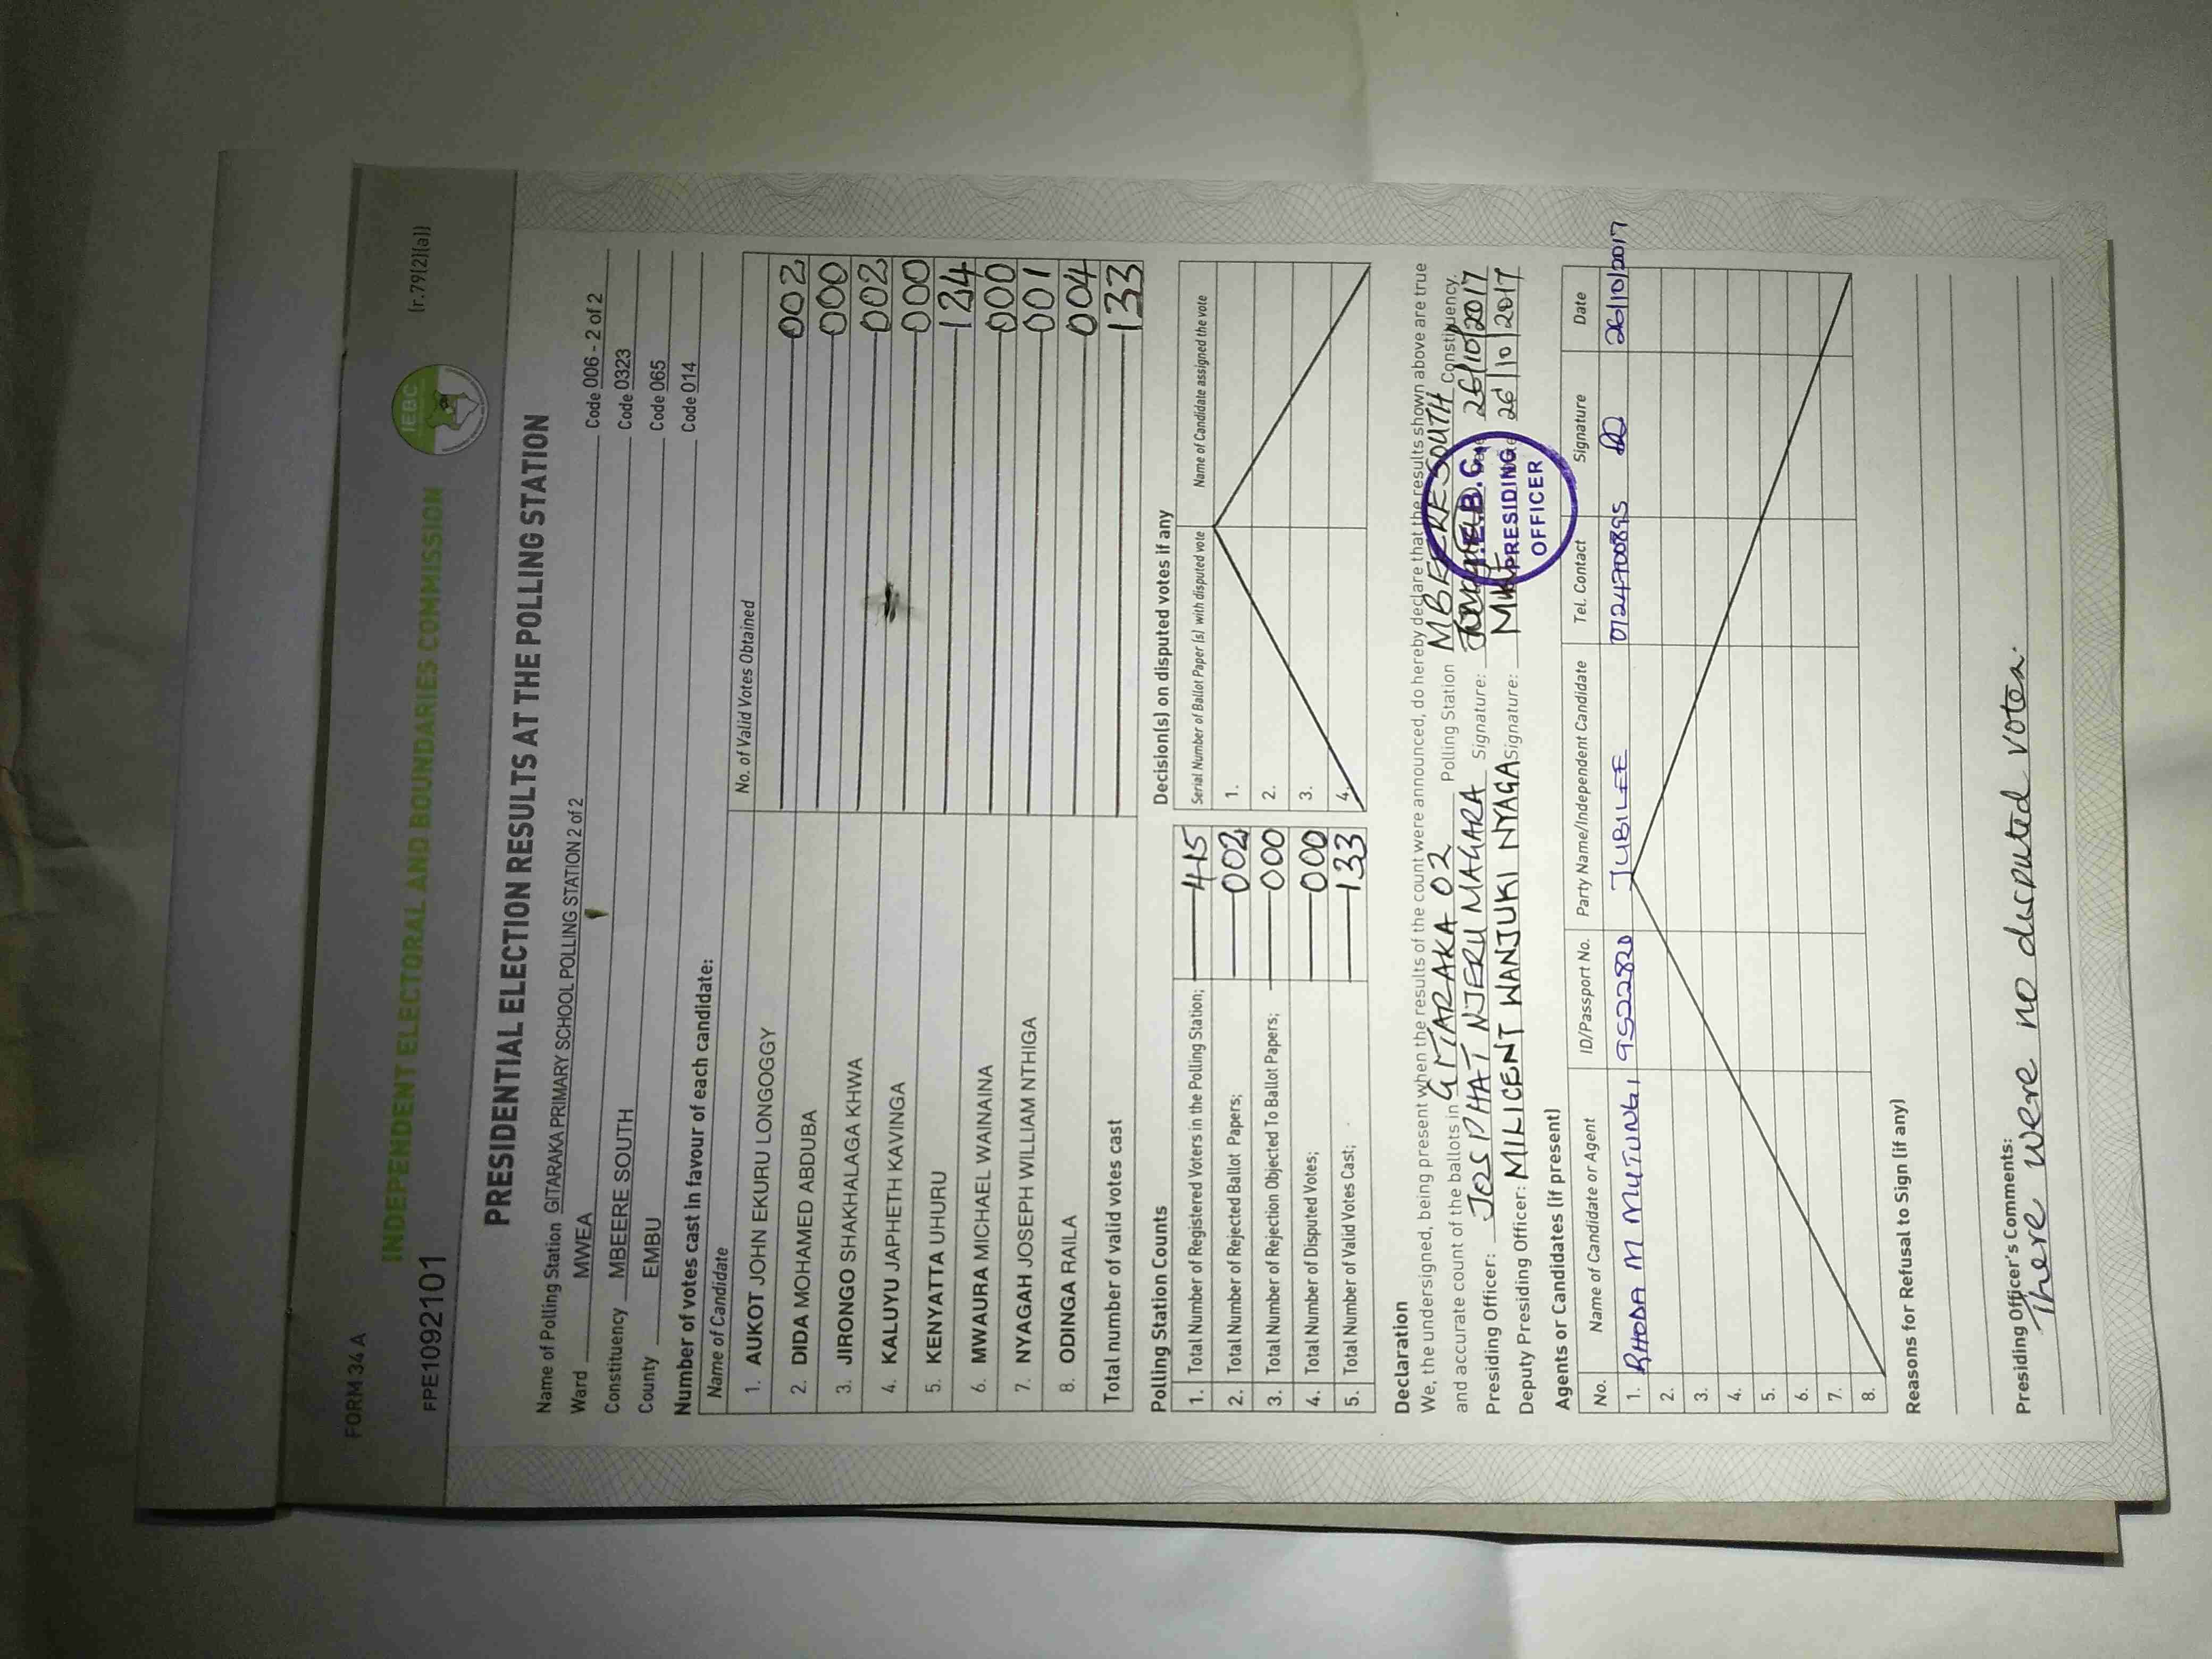 FORM 34 A
(r.79(2)(a))
IEBC
INDEPENDENT ELECTORAL AND BOUNDARIES COMMISSION
FPE1092101
PRESIDENTIAL ELECTION RESULTS AT THE POLLING STATION
Name of Polling Station GITARAKA PRIMARY SCHOOL POLLING STATION 2 of 2 Code 006 - 2 of 2
Ward MWEA Code 0323
Constituency MBEERE SOUTH Code 065
County EMBU Code 014
Number of votes cast in favour of each candidate:
Name of Candidate No. of Valid Votes Obtained
1. AUKOT JOHN EKURU LONGOGGY 002
2. DIDA MOHAMED ABDUBA 000
3. JIRONGO SHAKHALAGA KHWA 002
4. KALUYU JAPHETH KAVINGA 000
5. KENYATTA UHURU 124
6. MWAURA MICHAEL WAINAINA 000
7. NYAGAH JOSEPH WILLIAM NTHIGA 001
8. ODINGA RAILA 004
Total number of valid votes cast 133
Polling Station Counts
1. Total Number of Registered Voters in the Polling Station; 415
2. Total Number of Rejected Ballot Papers; 002
3. Total Number of Rejection Objected To Ballot Papers; 000
4. Total Number of Disputed Votes; 000
5. Total Number of Valid Votes Cast; 133
Decision(s) on disputed votes if any
Serial Number of Ballot Paper (s) with disputed vote Name of Candidate assigned the vote
1.
2.
3.
4.
Declaration
We, the undersigned, being present when the results of the count were announced, do hereby declare that the results shown above are true
and accurate count of the ballots in GITARAKA 02 Polling Station MBEERE SOUTH Constituency.
Presiding Officer: JOSPHAT NJERU MAGARA Signature: 26/10/2017
Deputy Presiding Officer: MILICENT WANJUKI NYAGA Signature: 26/10/2017
I.E.B.C.
PRESIDING
OFFICER
Agents or Candidates (if present)
No. Name of Candidate or Agent ID/Passport No. Party Name/Independent Candidate Tel. Contact Signature Date
1. RHODA M MUTUNGI 9522820 JUBILEE 0724700895 26/10/2017
2.
3.
4.
5.
6.
7.
8.
Reasons for Refusal to Sign (if any)
Presiding Officer's Comments:
There were no disputed votes.